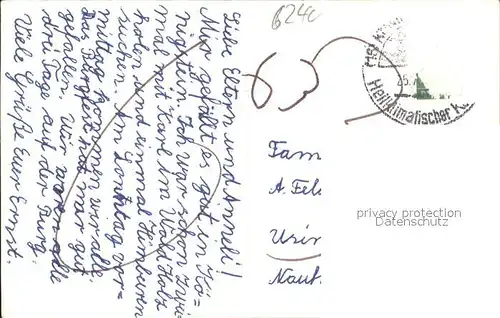 624c
Liebe Eltern und Anneli!
Mir gefällt es gut in Kö=
nigstein. Ich war schon zwei=
mal mit Karl im Wald Holz
holen und einmal Himbeeren
suchen. Am Sonntag Vor=
mittag kommen wir alle.
Das Burgfest hat mir gut
gefallen. Wir waren alle
drei Tage auf der Burg.
Viele Grüße Euer Ernst.
Heilklimatischer K
25.
Fam
A. Fel
Usin
Naut
privacy protection
Datenschutz